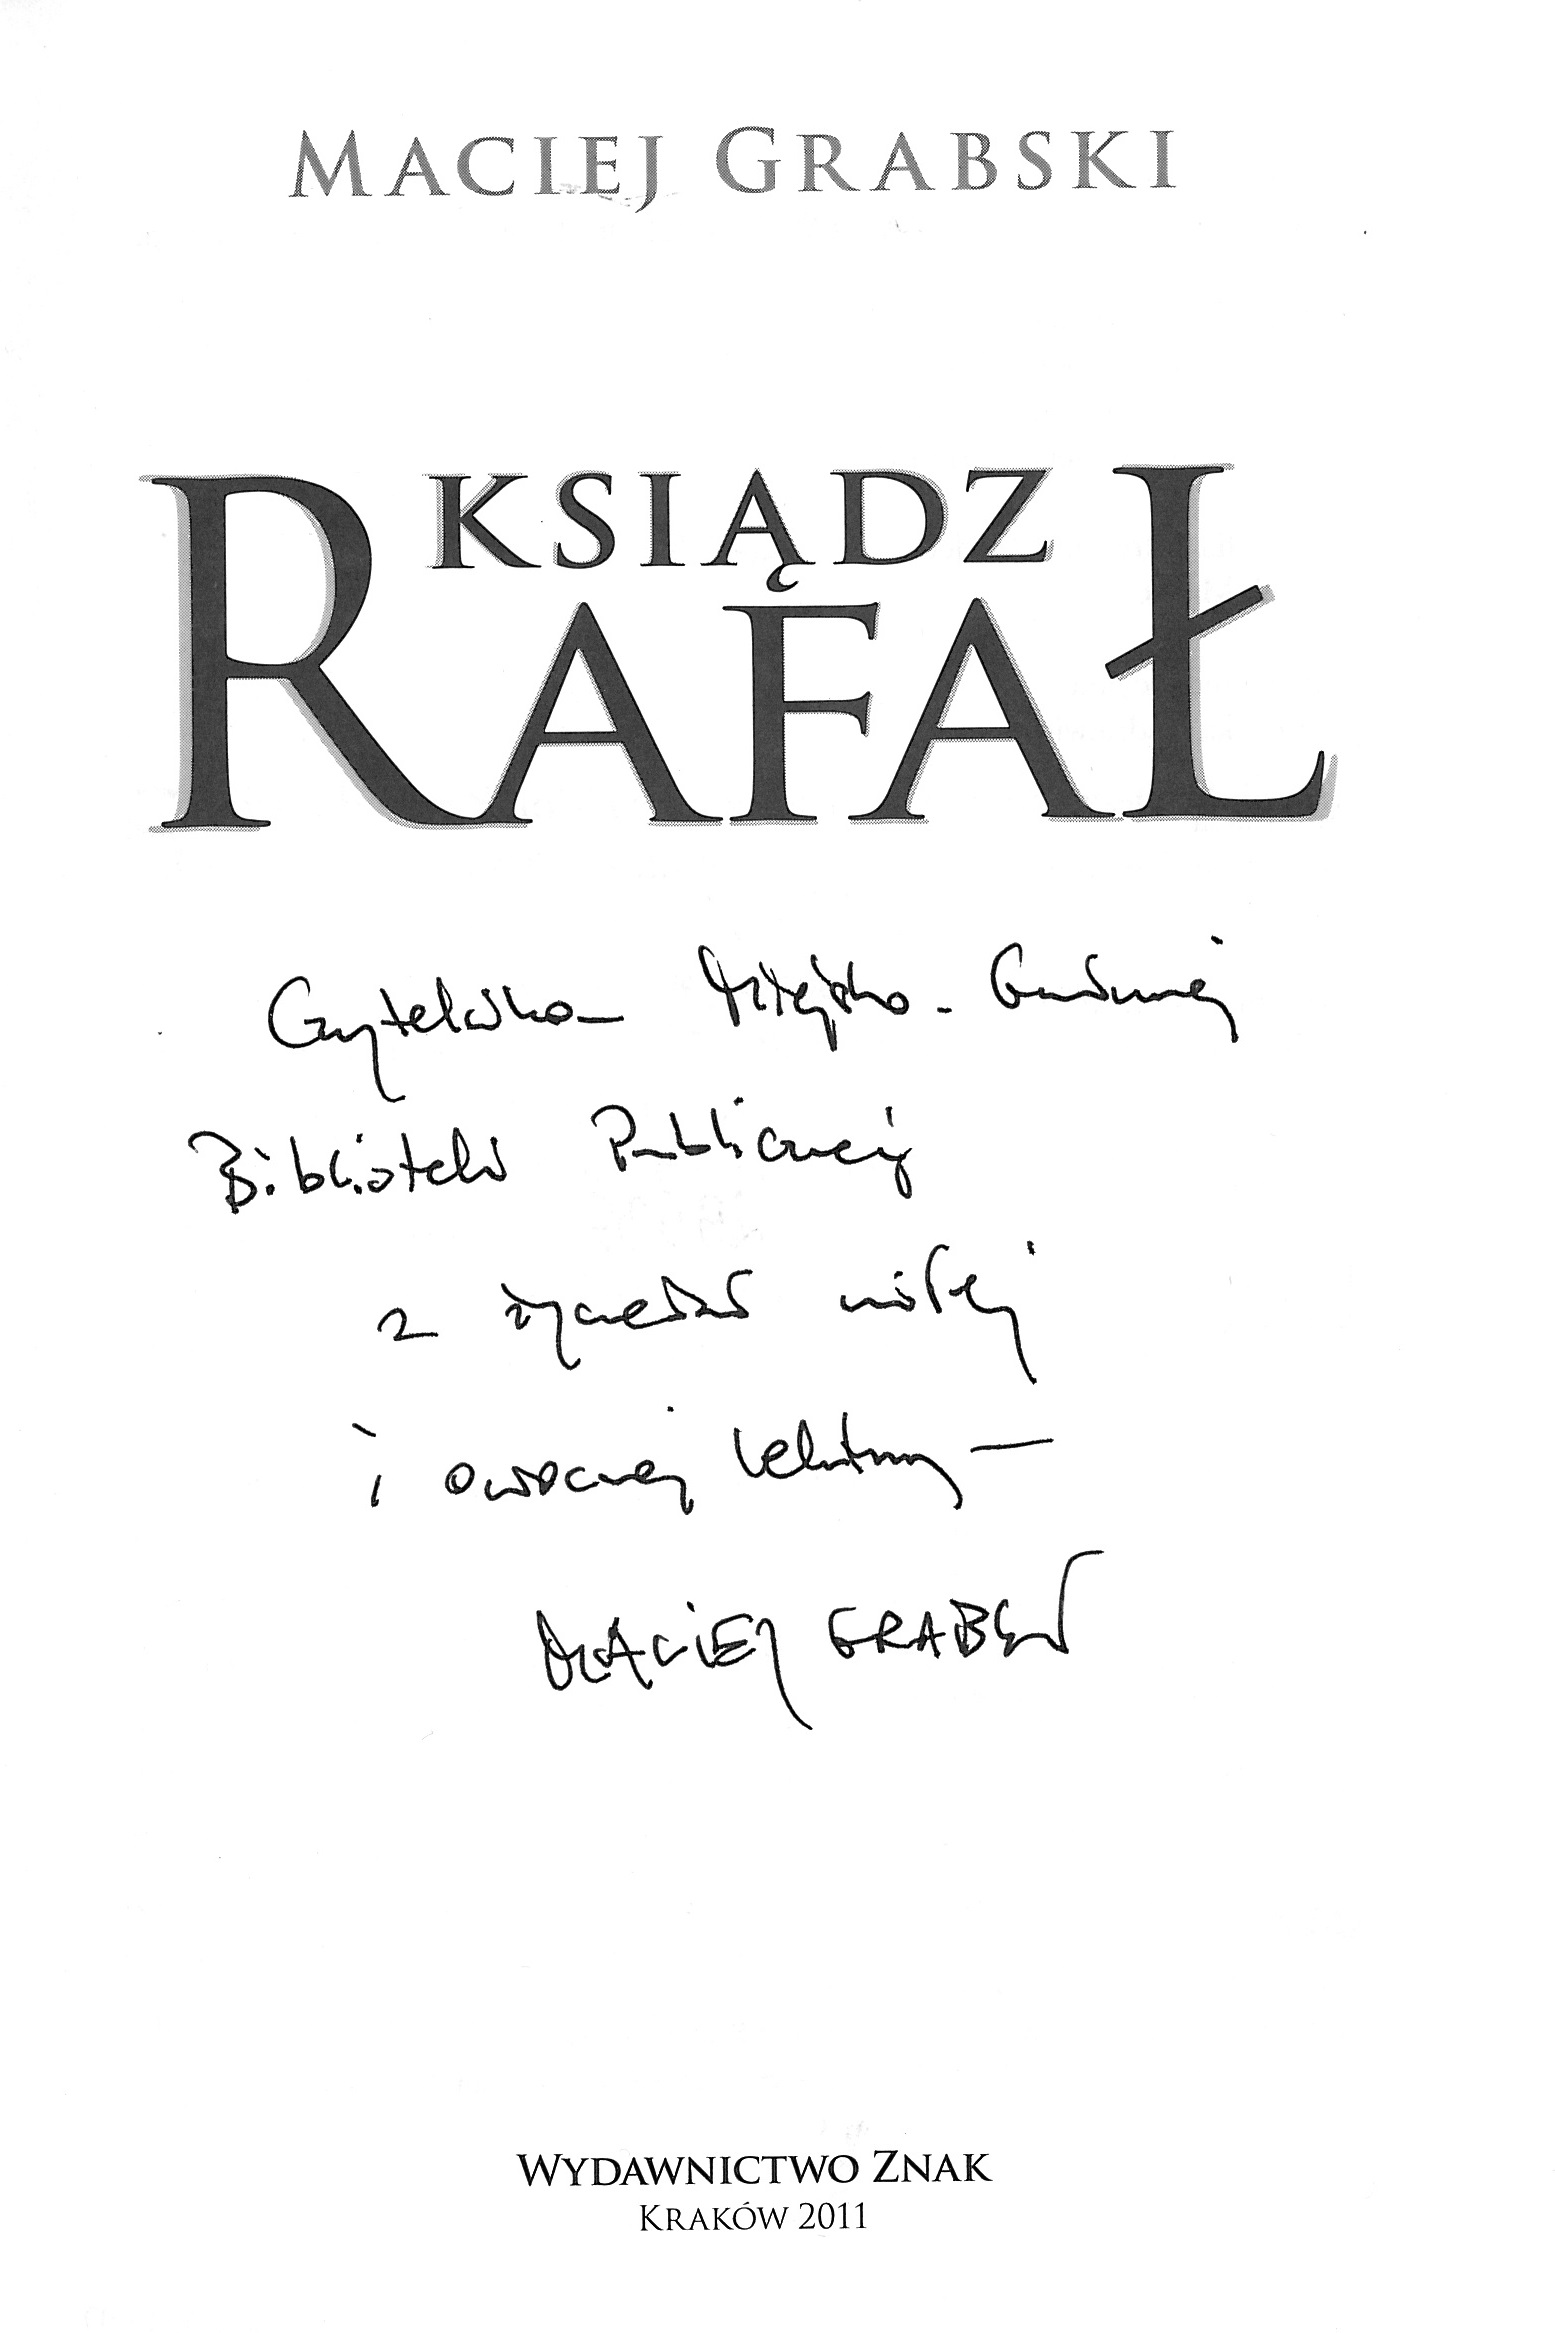 MACIEJ GRABSKI
KSIĄDZ
RAFAŁ
Czytelnikom Miejsko-Gminnej
Biblioteki Publicznej
z życzeniami miłej
i owocnej lektury –
MACIEJ GRABSKI
WYDAWNICTWO ZNAK
KRAKÓW 2011